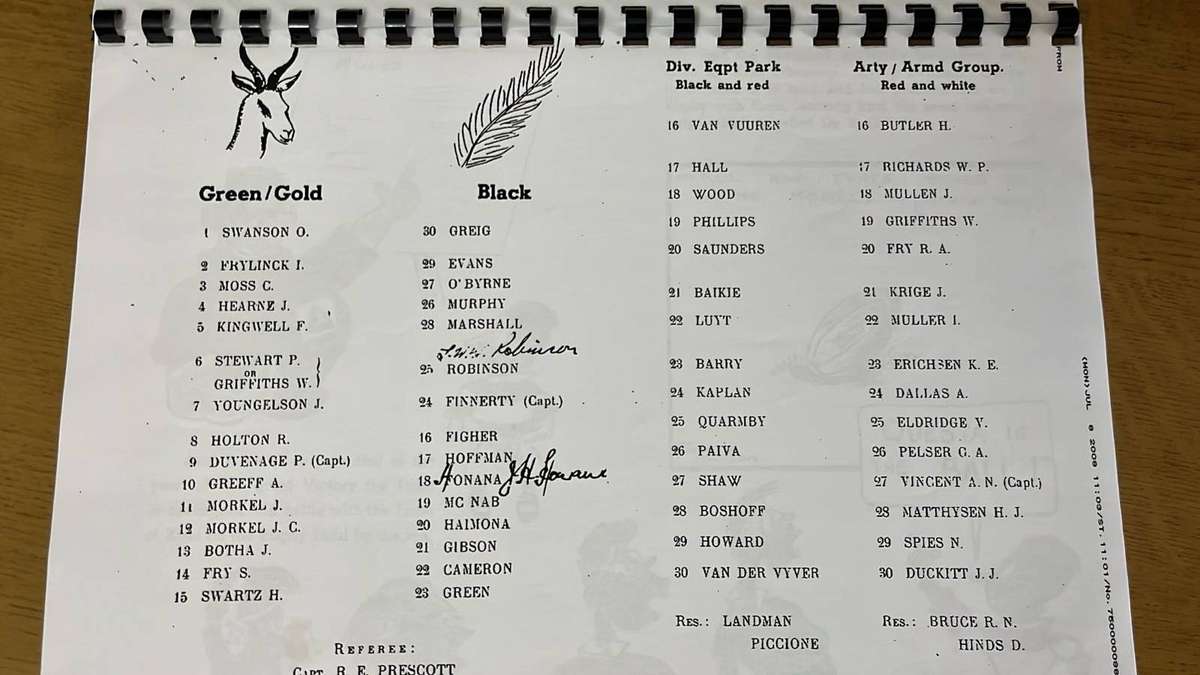 Green/Gold
1 SWANSON O.
2 FRYLINCK I.
3 MOSS C.
4 HEARNE J.
5 KINGWELL F.
6 STEWART P.
OR
GRIFFITHS W.
7 YOUNGELSON J.
8 HOLTON R.
9 DUVENAGE P. (Capt.)
10 GREEFF A.
11 MORKEL J.
12 MORKEL J. C.
13 BOTHA J.
14 FRY S.
15 SWARTZ H.
Black
30 GREIG
29 EVANS
27 O'BYRNE
26 MURPHY
28 MARSHALL
Robinson
25 ROBINSON
24 FINNERTY (Capt.)
16 FIGHER
17 HOFFMAN
18 HONANA
19 MC NAB
20 HAIMONA
21 GIBSON
22 CAMERON
23 GREEN
REFEREE:
CAPT. R. E. PRESCOTT
Div. Eqpt Park
Black and red
16 VAN VUUREN
17 HALL
18 WOOD
19 PHILLIPS
20 SAUNDERS
21 BAIKIE
22 LUYT
23 BARRY
24 KAPLAN
25 QUARMBY
26 PAIVA
27 SHAW
28 BOSHOFF
29 HOWARD
30 VAN DER VYVER
RES.: LANDMAN
PICCIONE
Arty / Armd Group.
Red and white
16 BUTLER H.
17 RICHARDS W. P.
18 MULLEN J.
19 GRIFFITHS W.
20 FRY R. A.
21 KRIGE J.
22 MULLER I.
23 ERICHSEN K. E.
24 DALLAS A.
25 ELDRIDGE V.
26 PELSER G. A.
27 VINCENT A. N. (Capt.)
28 MATTHYSEN H. J.
29 SPIES N.
30 DUCKITT J. J.
RES.: BRUCE R. N.
HINDS D.
FROM
(MON)JUL 6 2009 11:03/ST. 11:01/No.